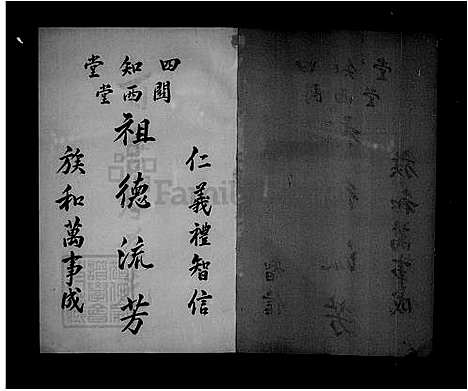 四知堂
關西堂
仁義禮智信
祖德流芳
族和萬事成